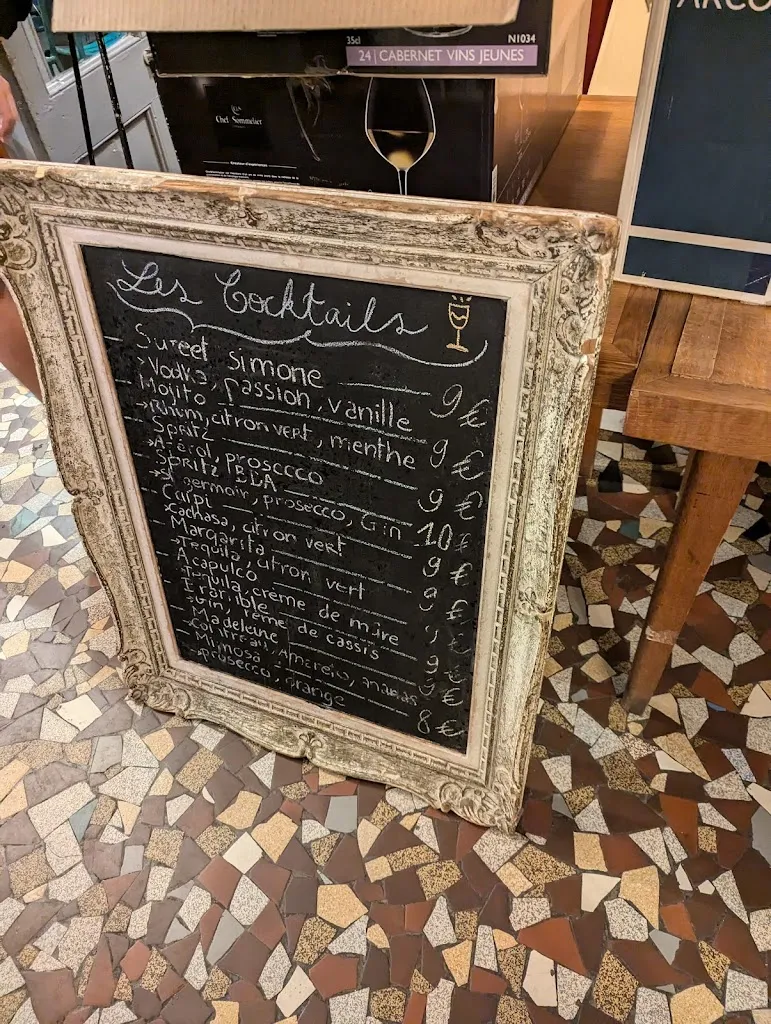 35cl N1034
24 | CABERNET VINS JEUNES
Chef & Sommelier
ARCO
Les Cocktails
Sweet Simone 9 €
Vodka, passion, vanille
Mojito 9 €
Rhum, citron vert, menthe
Spritz 9 €
Apérol, prosecco
Spritz BDA 10 €
St germain, prosecco, Gin
Caïpi 9 €
cachasa, citron vert
Margarita 9 €
Tequila, citron vert
Acapulco €
Tequila, crème de mûre
9 €
crème de cassis
Madeleine €
Amaretto, ananas
Mimosa 8 €
prosecco, orange